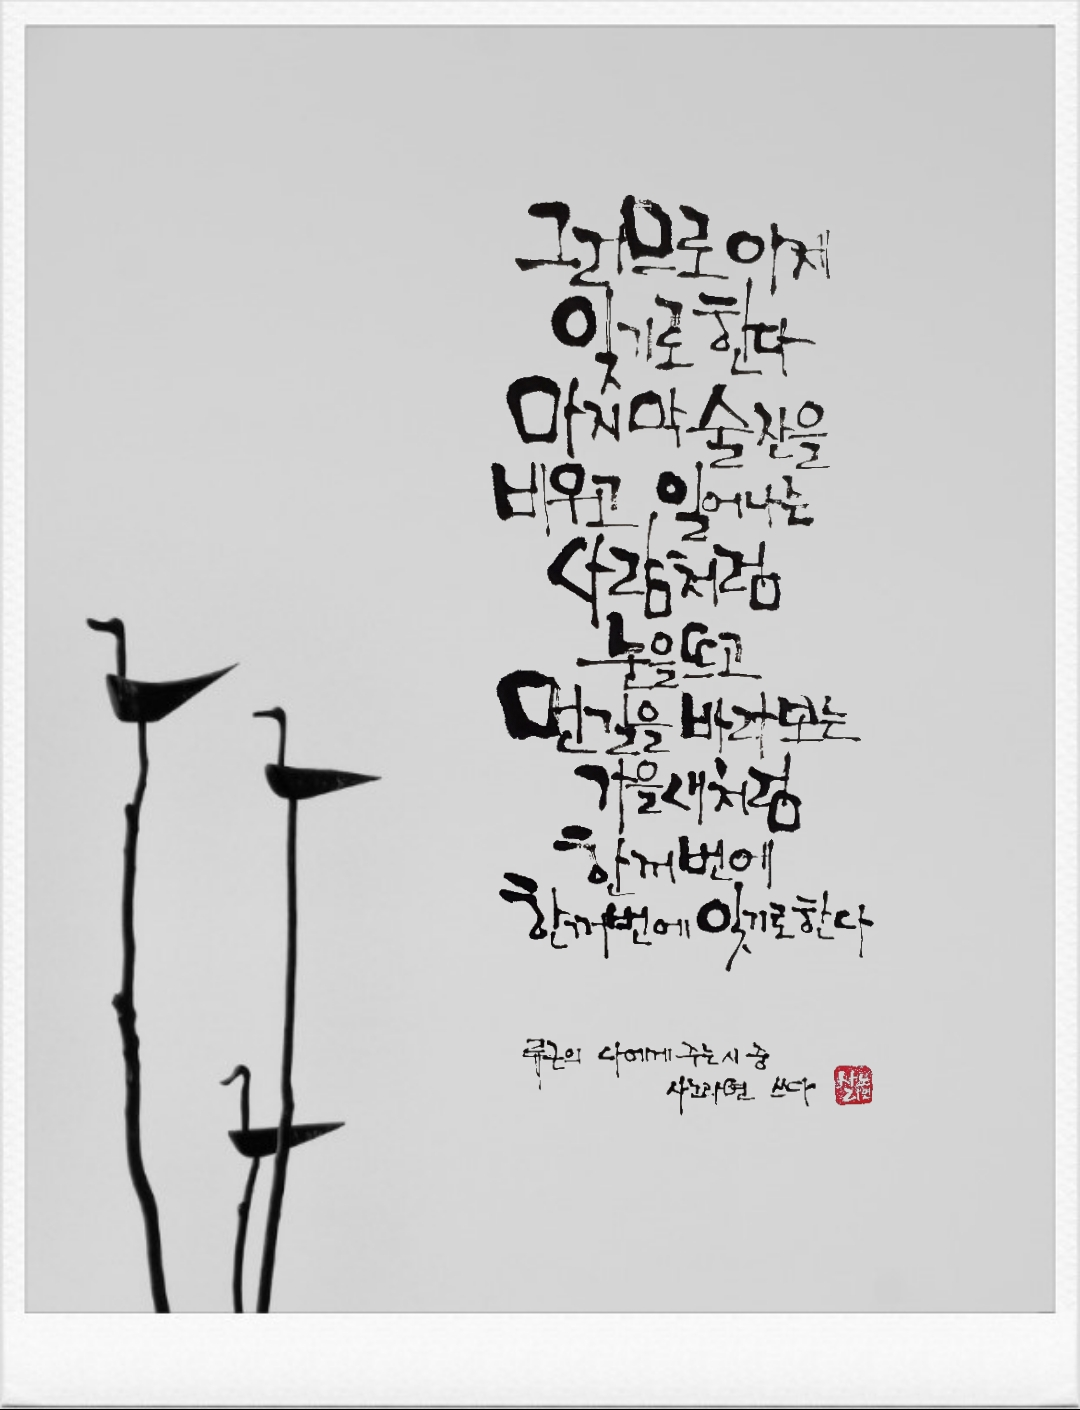 그러므로 이제
잊기로 한다
마지막 술잔을
비우고 일어나는
사람처럼
눈을 뜨고
먼 길을 바라보는
가을새처럼
한꺼번에
한꺼번에 잊기로 한다
류근의 나에게 주는 시 중
사노라면 쓰다